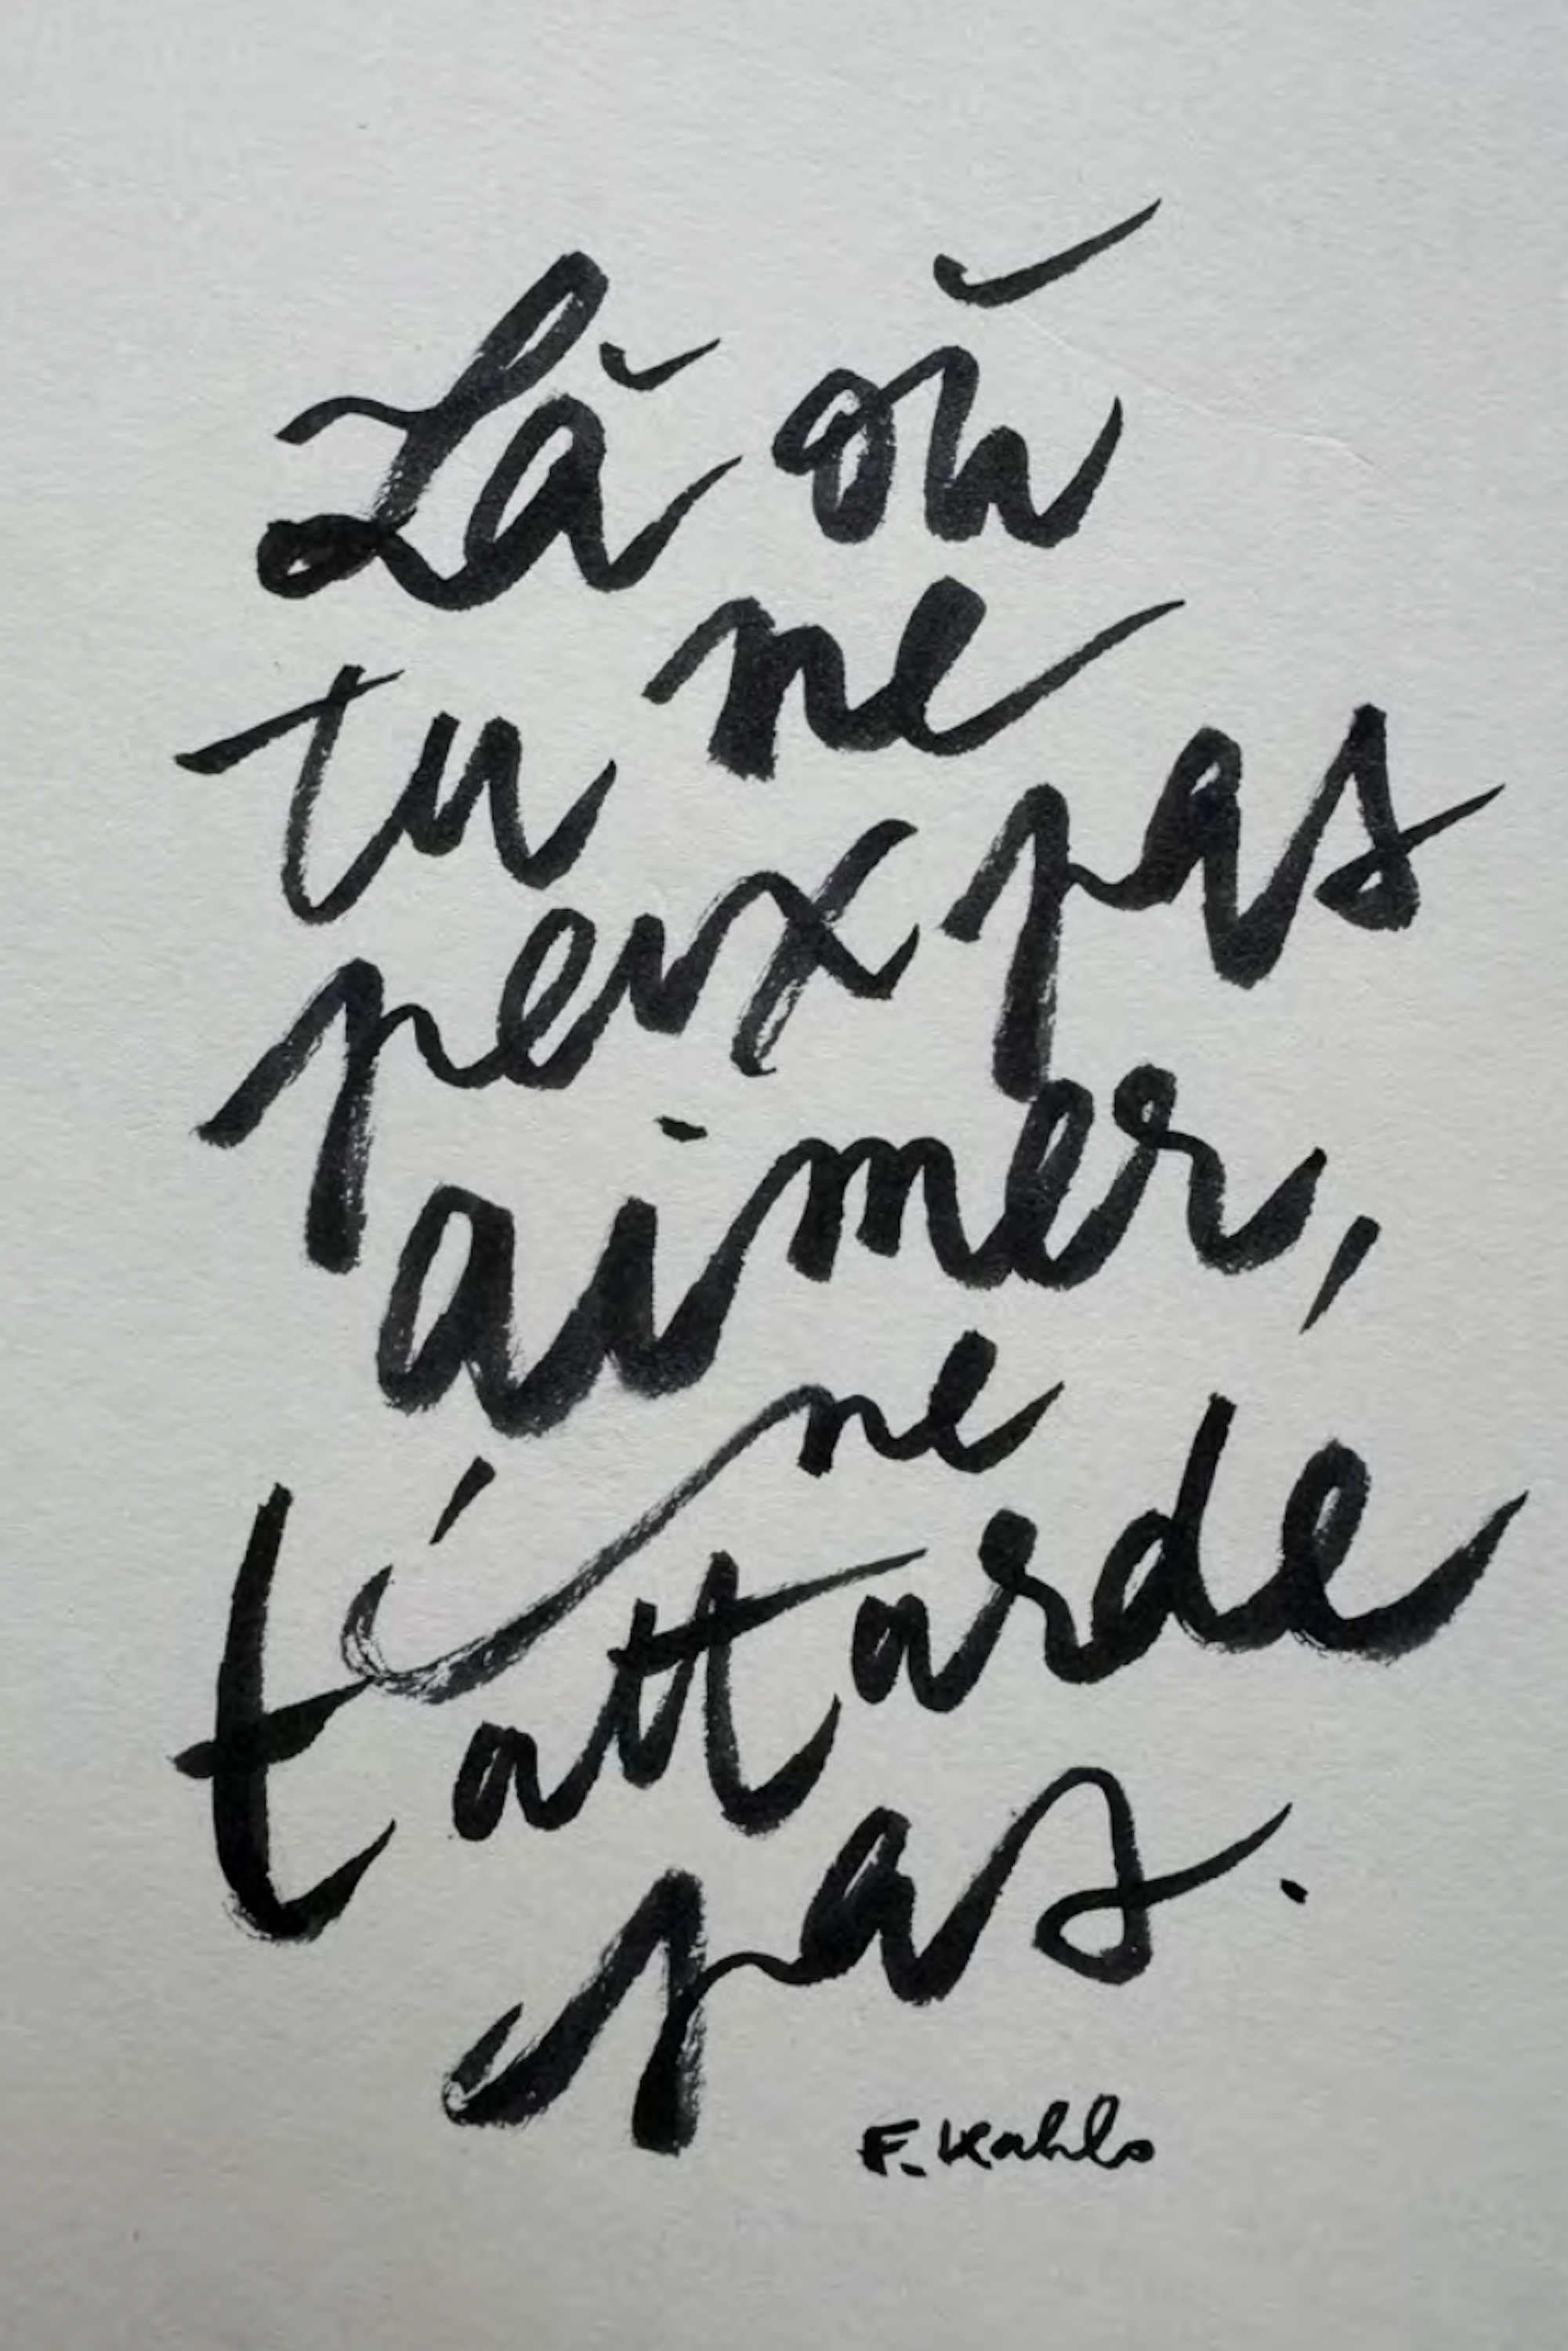 Là où
tu ne
peux pas
aimer,
ne
t'attarde
pas.
F. Kahlo